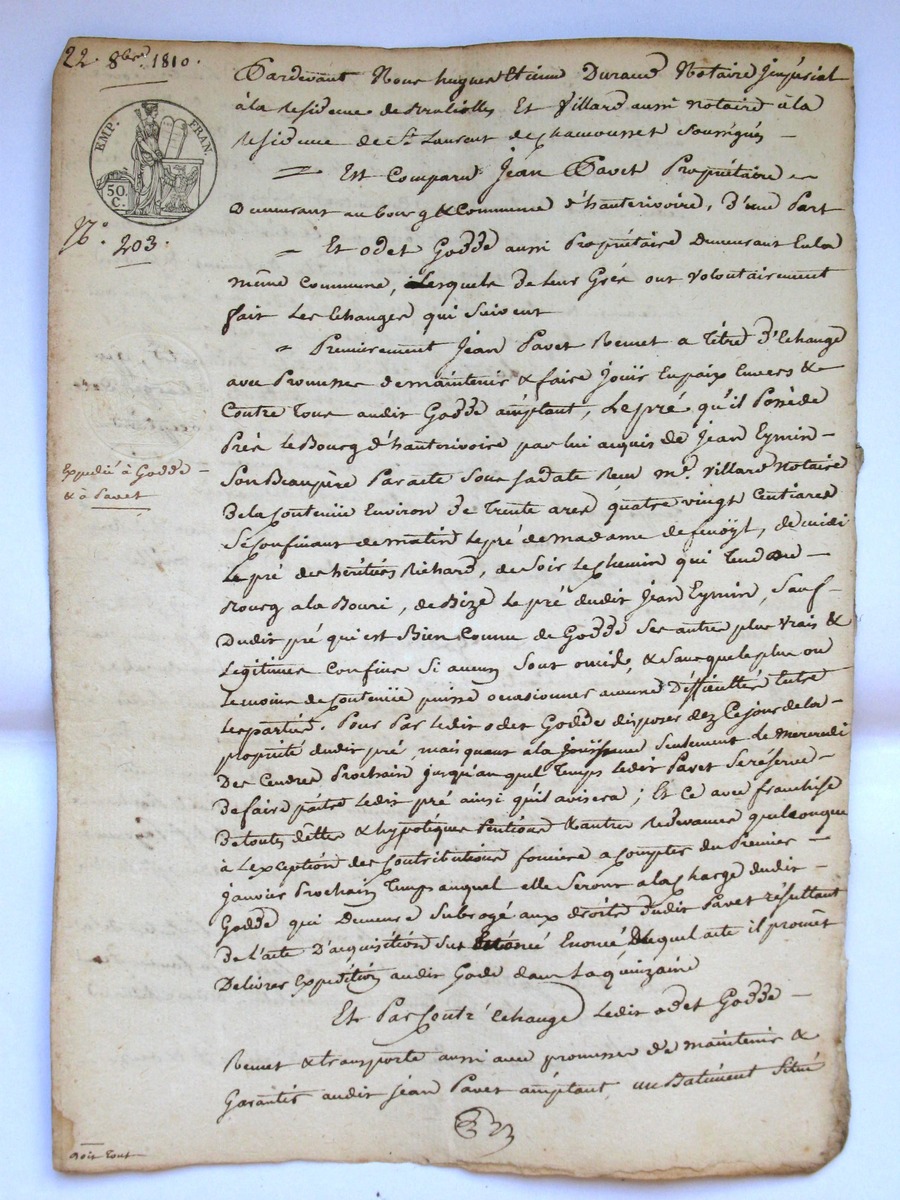 22. 8bre 1810.
EMP. FRAN.
50 C.
N°. 203.
Expedié à Godde
& à Pavet
Pardevant Nous hugues Etienne Durand Notaire Imperial
à la Residence de Brulioles Et Villard aussi notaire à la
Residence de St. Laurent de chamousset Soussignés
= Est Comparu Jean Pavet Propriétaire
Demeurant au bourg & Commune d'hauterivoire, d'une Part
= Et odet Godde aussi Propriétaire Demeurant En la
même Commune, Lesquels de Leur Grés ont Volontairement
fait Les Echanges qui Suivent
= Premierement Jean Pavet Remet a Titre d'Echange
avec Promesses de maintenir & faire Jouir En paix Envers &
Contre Tous audit Godde acceptant, Le pré qu'il Possède
Près Le Bourg d'hauterivoire par lui acquis de Jean Eymin
Son Beaupère Par acte Sous sa date Reçu me. Villard Notaire
De la Contenüe Environ De Trente ares quatre vingt Centiares
Se Confinant de matin Le pré de madame de fenoÿl, de midi
Le pré des héritiers Richard, de Soir Le chemin qui Tend du
Bourg a la Bouri, de Bize Le pré dudit Jean Eymin, Sauf
Dudit pré qui est Bien Connu de Godde Ses autres plus Vrais &
Legitimes Confins Si aucun Sont omis, & Sans que le plus ou
Le moins de Contenüe puisse occasionner aucune Difficultés Entre
Les parties. Pour Par Ledit odet Godde disposer dez Ce jour de la
propriété dudit pré, mais quant à la jouissance Seulement Le Mercredi
Des Cendres Prochain jusqu'auquel Temps Ledit Pavet Se réserve
De faire paitre Ledit pré ainsi qu'il avisera; Et Ce avec franchise
De toutes dettes & hypotéques Pentions & autres Redevances quelconque
à L'exception des Contributions foncière a Compter du Premier
janvier Prochain Temps auquel elle Seront a la Charge dudit
Godde qui Demeure Subrogé aux droits dudit Pavet résultant
de l'acte D'acquisition Sus Enoncé Duquel acte il promêt
Delivrer Expedition audit Gode dans La quinzaine
Et Par Contr'échange Ledit odet Godde
Remet & transporte aussi avec promesses de maintenir &
Garantir audit Jean Pavet acceptant, un Batiment Situé